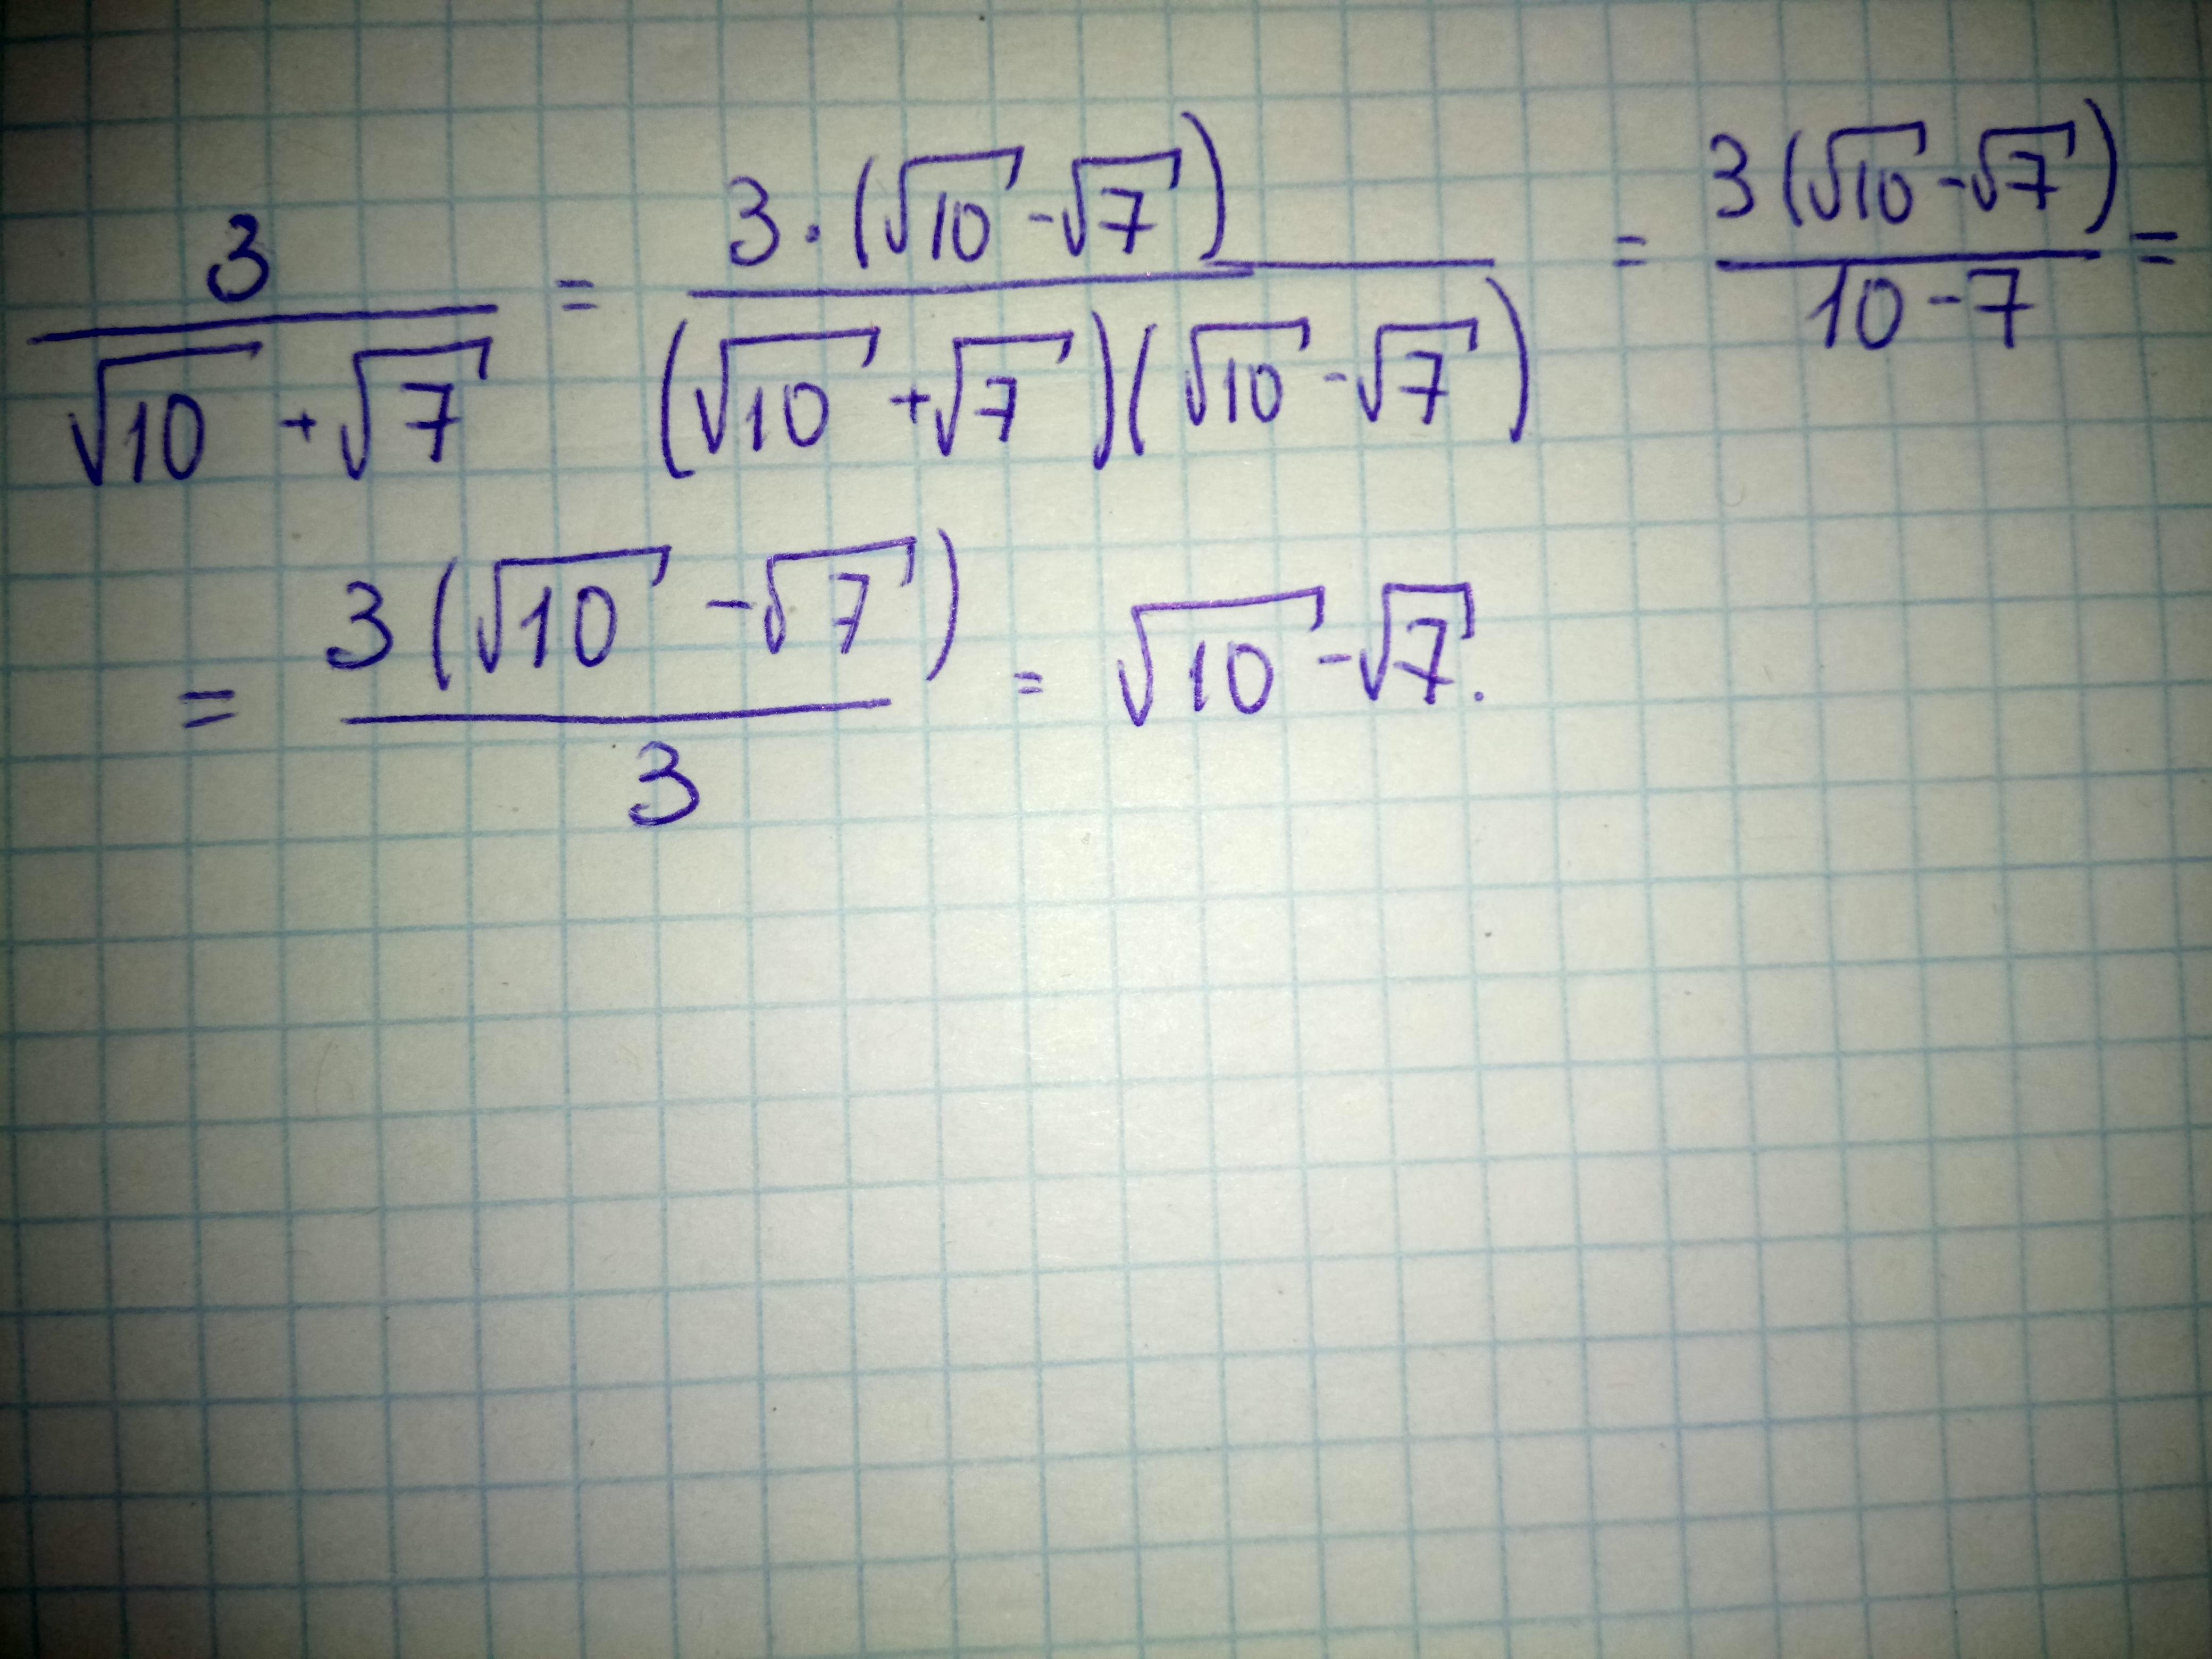 3/(√10 + √7) = 3·(√10 - √7)/((√10 + √7)(√10 - √7)) = 3(√10 - √7)/(10 - 7) =
= 3(√10 - √7)/3 = √10 - √7.